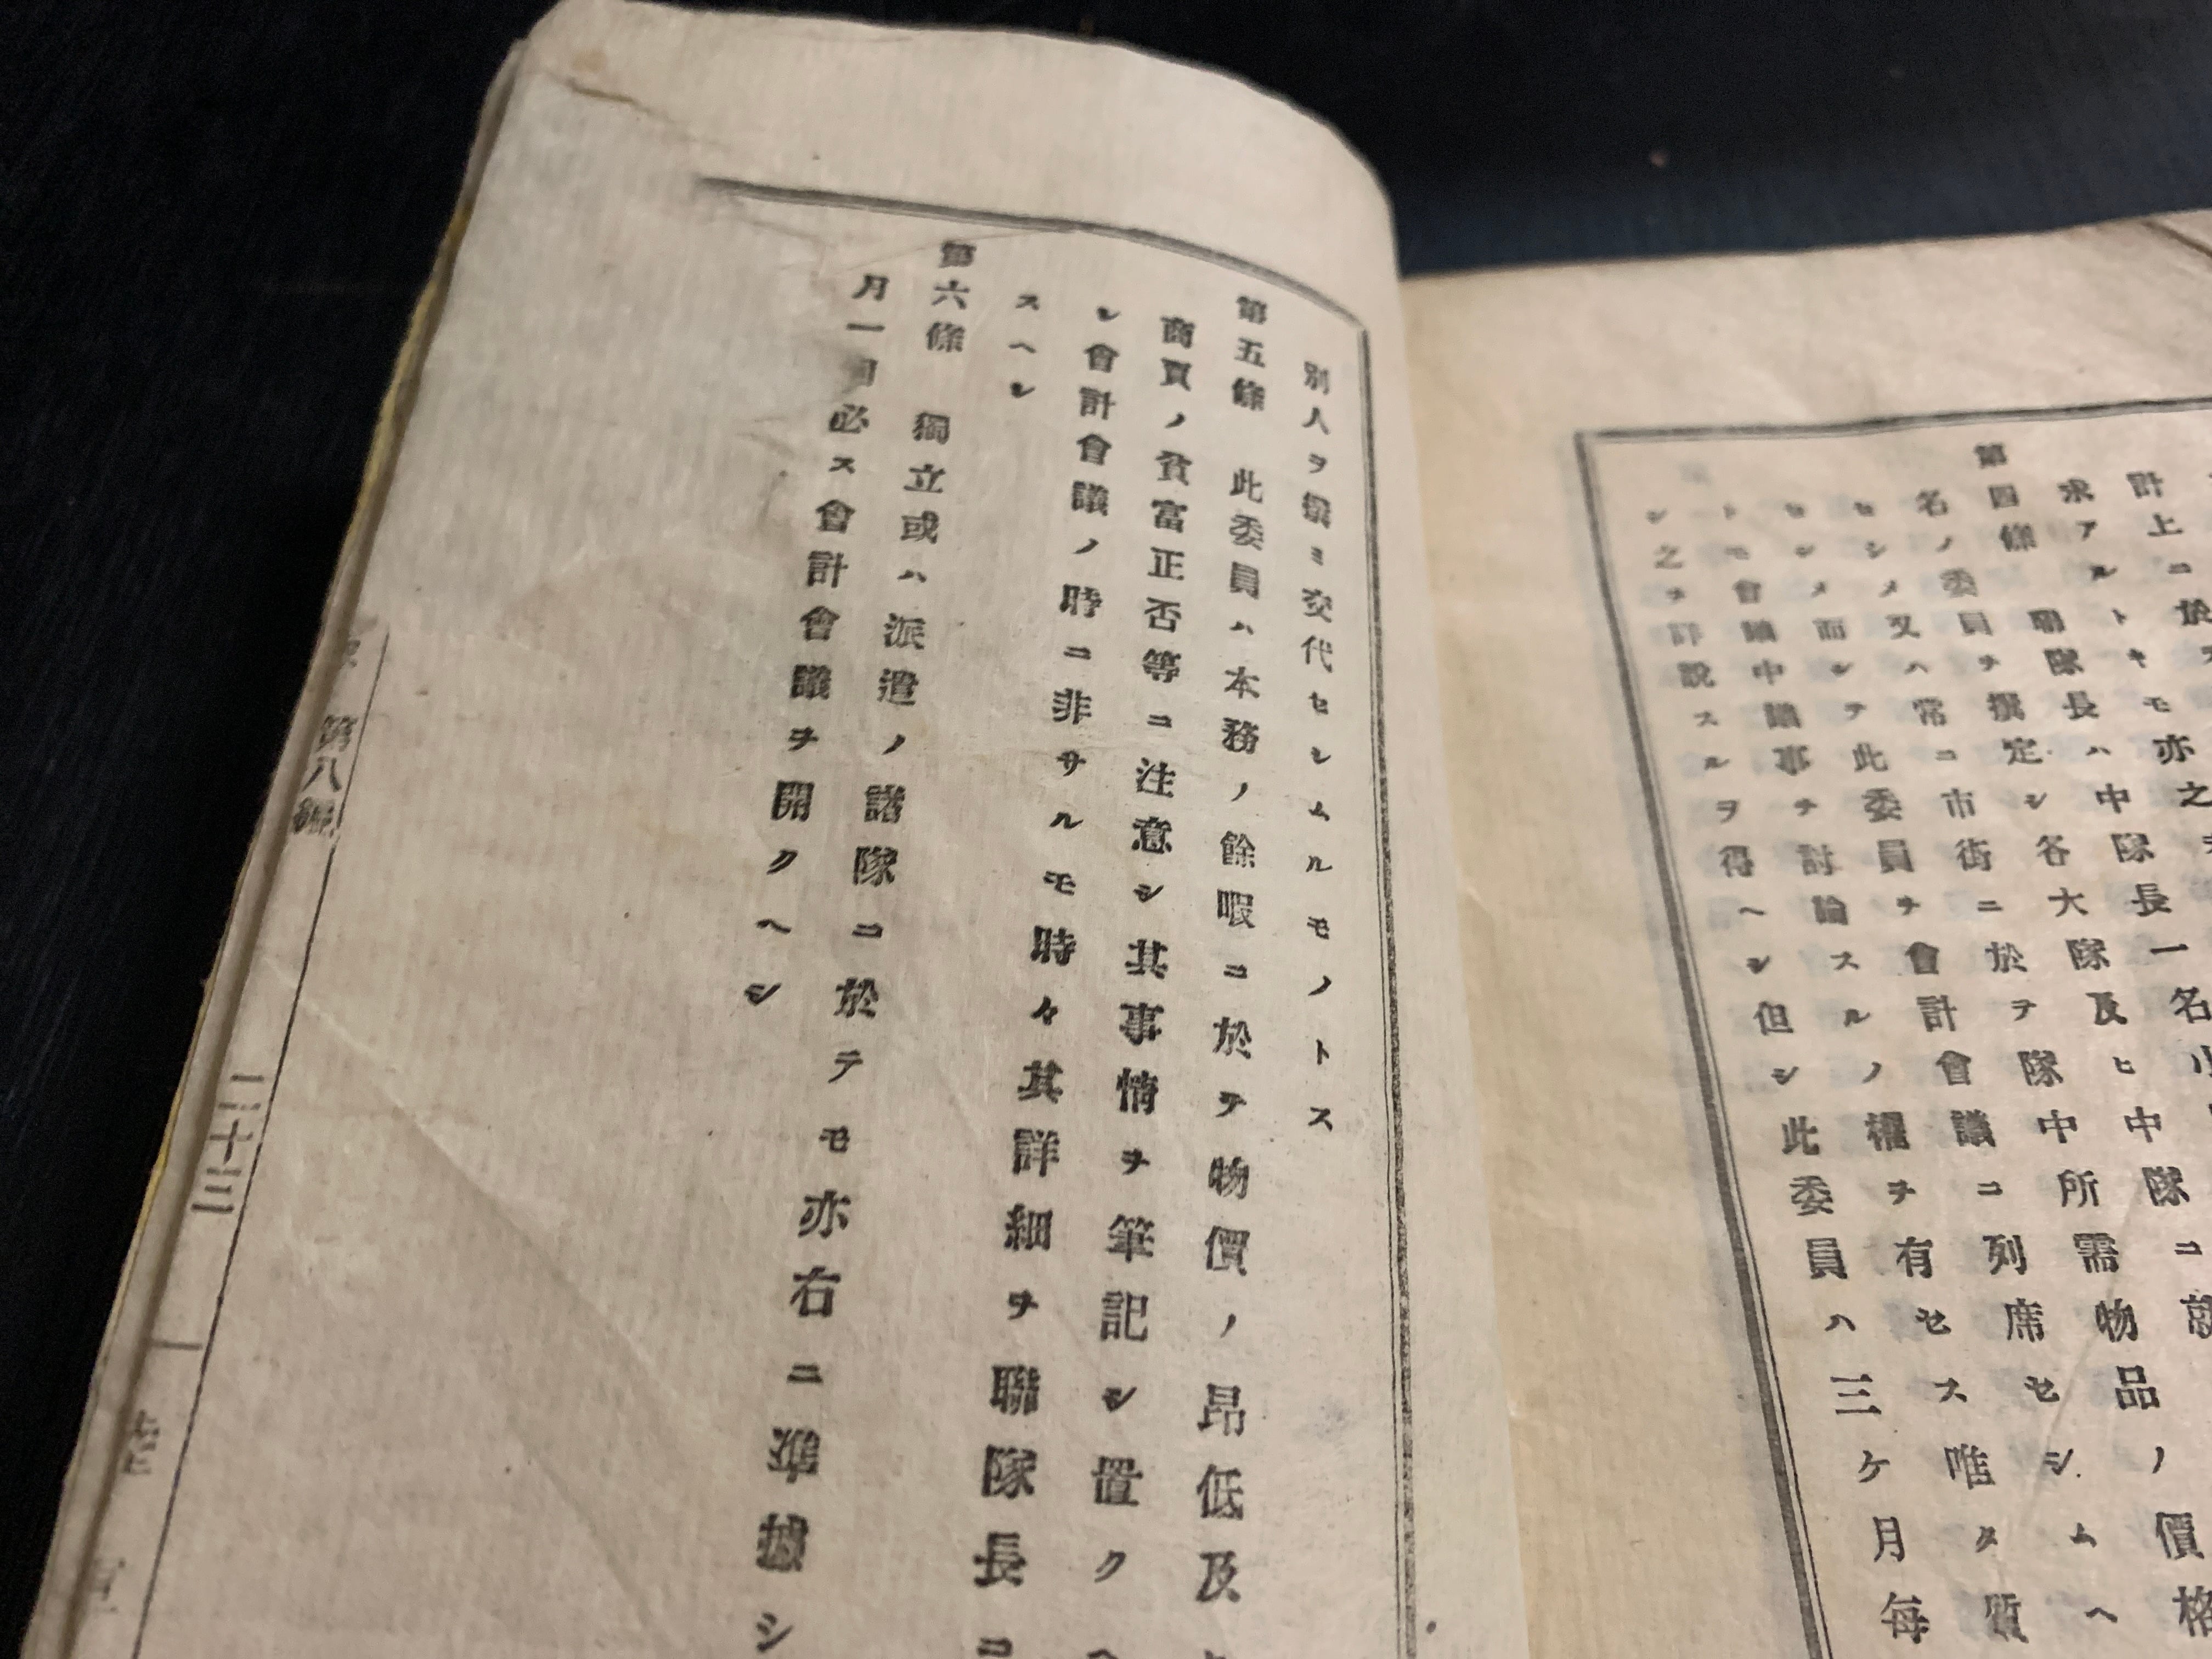 計上ニ於
求アルトキモ亦之
第四條 聯隊長ハ中隊長一名
名ノ委員ヲ撰定シ各大隊及ヒ中隊ニ
セシメ又ハ常ニ市街ニ於テ隊中所需物品ノ價格
セシメ而シテ此委員ヲ會計會議ニ列席セシムヘ
トモ會議中議事ヲ討論スルノ權ヲ有セス唯タ質
シ之ヲ詳説スルヲ得ヘシ但シ此委員ハ三ケ月毎
別人ヲ撰ミ交代セシムルモノトス
第五條 此委員ハ本務ノ餘暇ニ於テ物價ノ昂低及
商賈ノ貧富正否等ニ注意シ其事情ヲ筆記シ置クヘ
シ會計會議ノ時ニ非サルモ時々其詳細ヲ聯隊長ニ
スヘシ
第六條 獨立或ハ派遣ノ諸隊ニ於テモ亦右ニ準據シ
月一回必ス會計會議ヲ開クヘシ
第八編
二十三